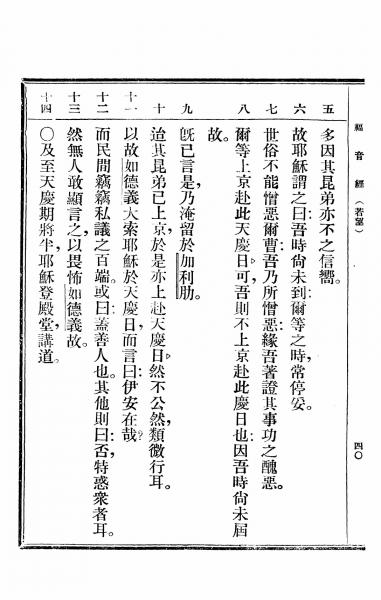 福音經（若望）
四〇
五 多因其昆弟亦不之信嚮。
六 故耶穌謂之曰吾時尙未到爾等之時常停妥。
七 世俗不能憎惡爾曹吾乃所憎惡緣吾著證其事功之醜惡。
八 爾等上京赴此天慶日可吾則不上京赴此慶日也因吾時尙未屆
故。
九 旣已言是乃淹留於加利肋。
十 迨其昆弟已上京於是亦上赴天慶日然不公然類微行耳。
十一 以故如德義大索耶穌於天慶日而言曰伊安在哉
十二 而民間竊竊私議之百端。或曰蓋善人也。其他則曰否特惑衆者耳。
十三 然無人敢顯言之以畏怖如德義故。
十四 〇及至天慶期將半耶穌登殿堂講道。